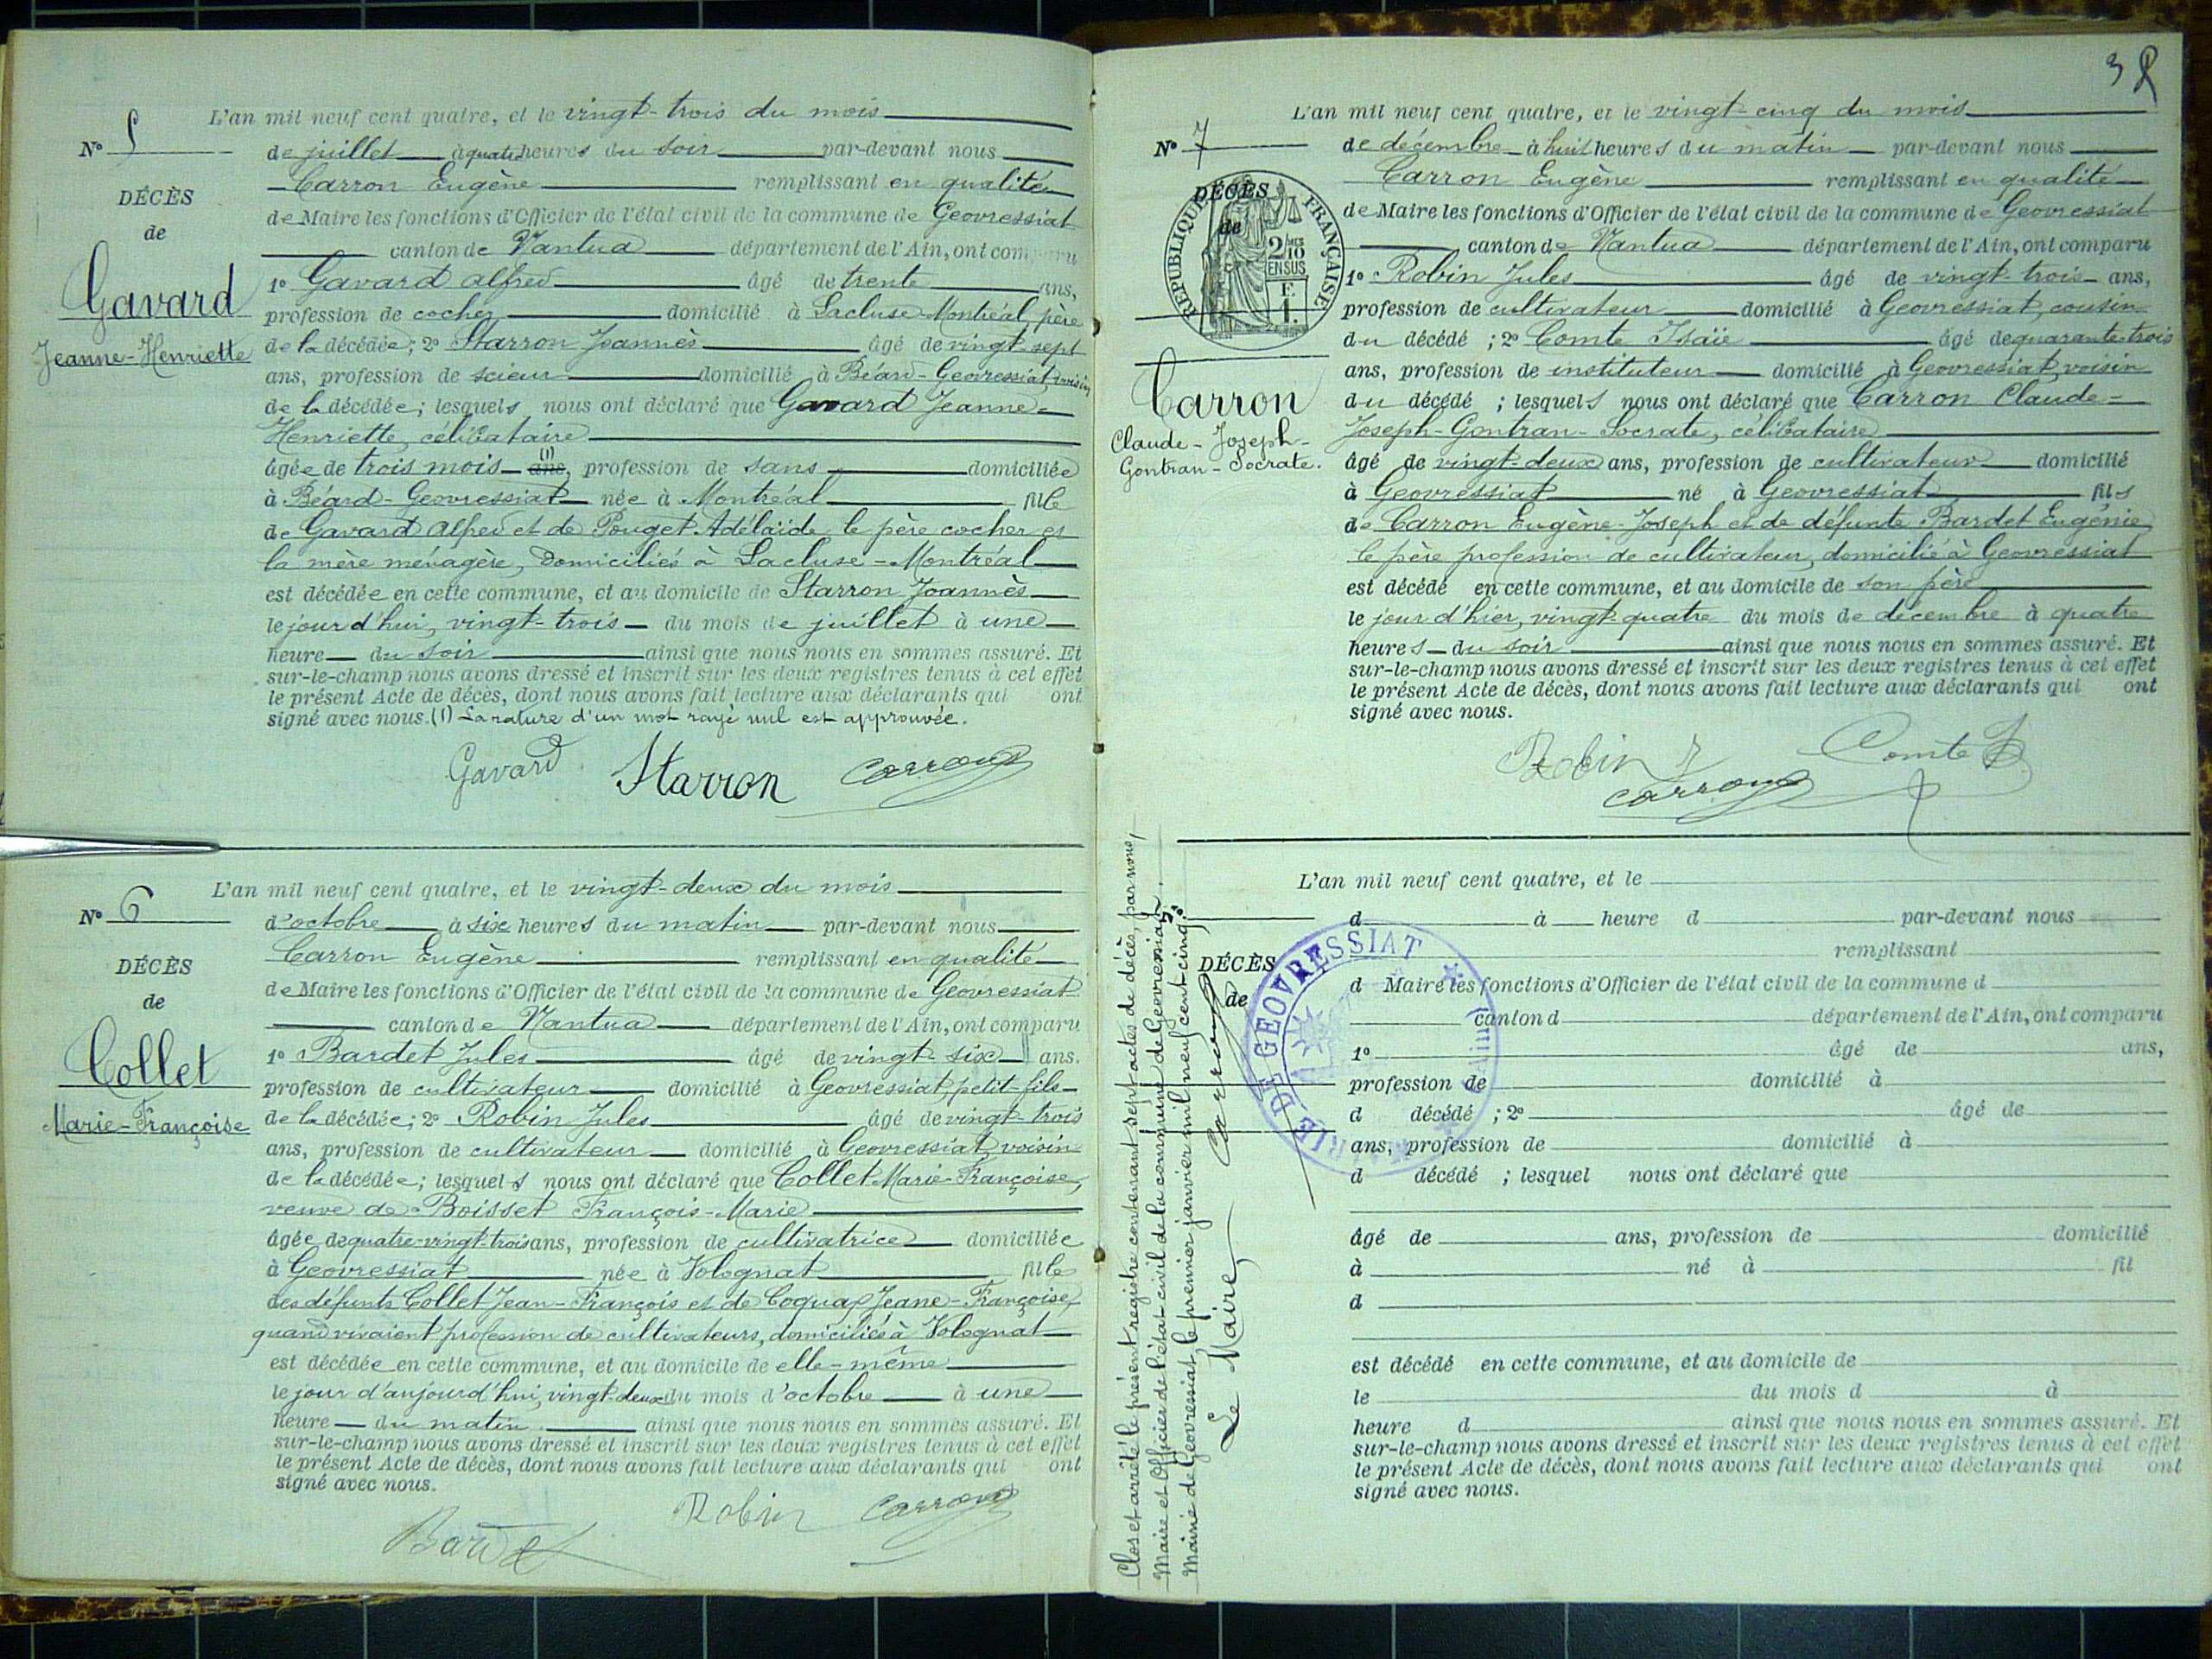 L'an mil neuf cent quatre, et le vingt-trois du mois
N° 5
de juillet à quatre heures du soir par-devant nous
Carron Eugène remplissant en qualité
DÉCÈS
de Maire les fonctions d'Officier de l'état civil de la commune de Geovressiat
de
canton de Nantua département de l'Ain, ont comparu
Gavard
1° Gavard Alfred âgé de trente ans,
profession de cocher domicilié à Lacluse-Montréal, père
Jeanne-Henriette
de la décédée; 2° Starron Joannès âgé de vingt sept
ans, profession de scieur domicilié à Béard-Geovressiat, voisin
de la décédée; lesquels nous ont déclaré que Gavard Jeanne-
Henriette, célibataire
âgée de trois mois (1) ans, profession de sans domiciliée
à Béard-Geovressiat née à Montréal fille
de Gavard Alfred et de Pouget Adélaïde le père cocher et
la mère ménagère, Domiciliés à Lacluse-Montréal
est décédée en cette commune, et au domicile de Starron Joannès
le jour d'hui, vingt-trois du mois de juillet à une
heure du soir ainsi que nous nous en sommes assuré. Et
sur-le-champ nous avons dressé et inscrit sur les deux registres tenus à cet effet
le présent Acte de décès, dont nous avons fait lecture aux déclarants qui ont
signé avec nous. (1) La rature d'un mot rayé nul est approuvée.
Gavard Starron Carron
L'an mil neuf cent quatre, et le vingt-deux du mois
N° 6
d'octobre à six heures du matin par-devant nous
Carron Eugène remplissant en qualité
DÉCÈS
de Maire les fonctions d'Officier de l'état civil de la commune de Geovressiat
de
canton de Nantua département de l'Ain, ont comparu
Collet
1° Bardet Jules âgé de vingt-six ans.
profession de cultivateur domicilié à Geovressiat, petit-fils
Marie-Françoise
de la décédée; 2° Robin Jules âgé de vingt-trois
ans, profession de cultivateur domicilié à Geovressiat, voisin
de la décédée; lesquels nous ont déclaré que Collet Marie-Françoise,
veuve de Boisset François-Marie
âgée de quatre-vingt-trois ans, profession de cultivatrice domiciliée
à Geovressiat née à Volognat fille
des défunts Collet Jean-François et de Coquap Jeane-Françoise,
quand vivaient profession de cultivateurs, domiciliés à Volognat
est décédée en cette commune, et au domicile de elle-même
le jour d'aujourd'hui, vingt-deux du mois d'octobre à une
heure du matin ainsi que nous nous en sommes assuré. Et
sur-le-champ nous avons dressé et inscrit sur les deux registres tenus à cet effet
le présent Acte de décès, dont nous avons fait lecture aux déclarants qui ont
signé avec nous.
Bardet Robin Carron
3
L'an mil neuf cent quatre, et le vingt-cinq du mois
N° 7
de décembre à huit heures du matin par-devant nous
Carron Eugène remplissant en qualité
DÉCÈS
de
RÉPUBLIQUE FRANÇAISE
2/10 EN SUS
E. 1.
de Maire les fonctions d'Officier de l'état civil de la commune de Geovressiat
canton de Nantua département de l'Ain, ont comparu
1° Robin Jules âgé de vingt-trois ans,
profession de cultivateur domicilié à Geovressiat, cousin
du décédé; 2° Comte Isaïe âgé de quarante-trois
ans, profession de instituteur domicilié à Geovressiat, voisin
Carron
Claude-Joseph-
Gontran-Socrate.
du décédé; lesquels nous ont déclaré que Carron Claude-
Joseph-Gontran-Socrate, célibataire
âgé de vingt-deux ans, profession de cultivateur domicilié
à Geovressiat né à Geovressiat fils
de Carron Eugène-Joseph et de défunte Bardet Eugénie
le père profession de cultivateur, domicilié à Geovressiat
est décédé en cette commune, et au domicile de son père
le jour d'hier, vingt-quatre du mois de décembre à quatre
heures du soir ainsi que nous nous en sommes assuré. Et
sur-le-champ nous avons dressé et inscrit sur les deux registres tenus à cet effet
le présent Acte de décès, dont nous avons fait lecture aux déclarants qui ont
signé avec nous.
Robin J Comte I
Carron
Clos et arrêté le présent registre contenant sept actes de décès, par nous,
Maire et Officier de l'état-civil de la commune de Geovressiat.
Mairie de Geovressiat, le premier janvier mil neuf cent cinq.
Le Maire, Carron
MAIRIE DE GEOVRESSIAT (Ain)
L'an mil neuf cent quatre, et le
N°
d à heure d par-devant nous
remplissant
DÉCÈS
de
d Maire les fonctions d'Officier de l'état civil de la commune d
canton d département de l'Ain, ont comparu
1° âgé de ans,
profession de domicilié à
d décédé ; 2° âgé de
ans, profession de domicilié à
d décédé ; lesquel nous ont déclaré que
âgé de ans, profession de domicilié
à né à fil
d
est décédé en cette commune, et au domicile de
le du mois d à
heure d ainsi que nous nous en sommes assuré. Et
sur-le-champ nous avons dressé et inscrit sur les deux registres tenus à cet effet
le présent Acte de décès, dont nous avons fait lecture aux déclarants qui ont
signé avec nous.